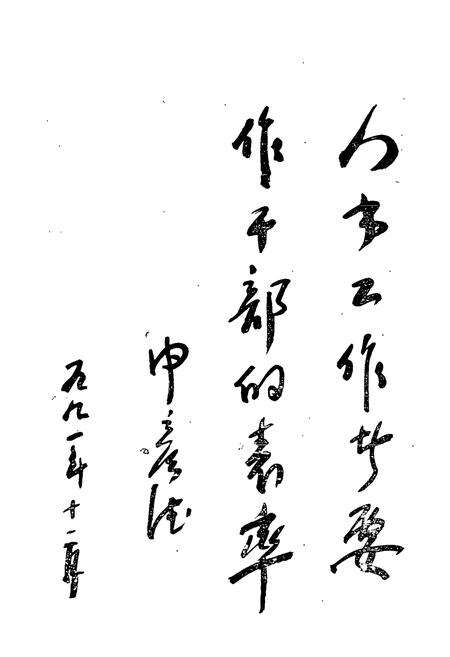 人事工作者要
作干部的表率
申
一九九一年十一月